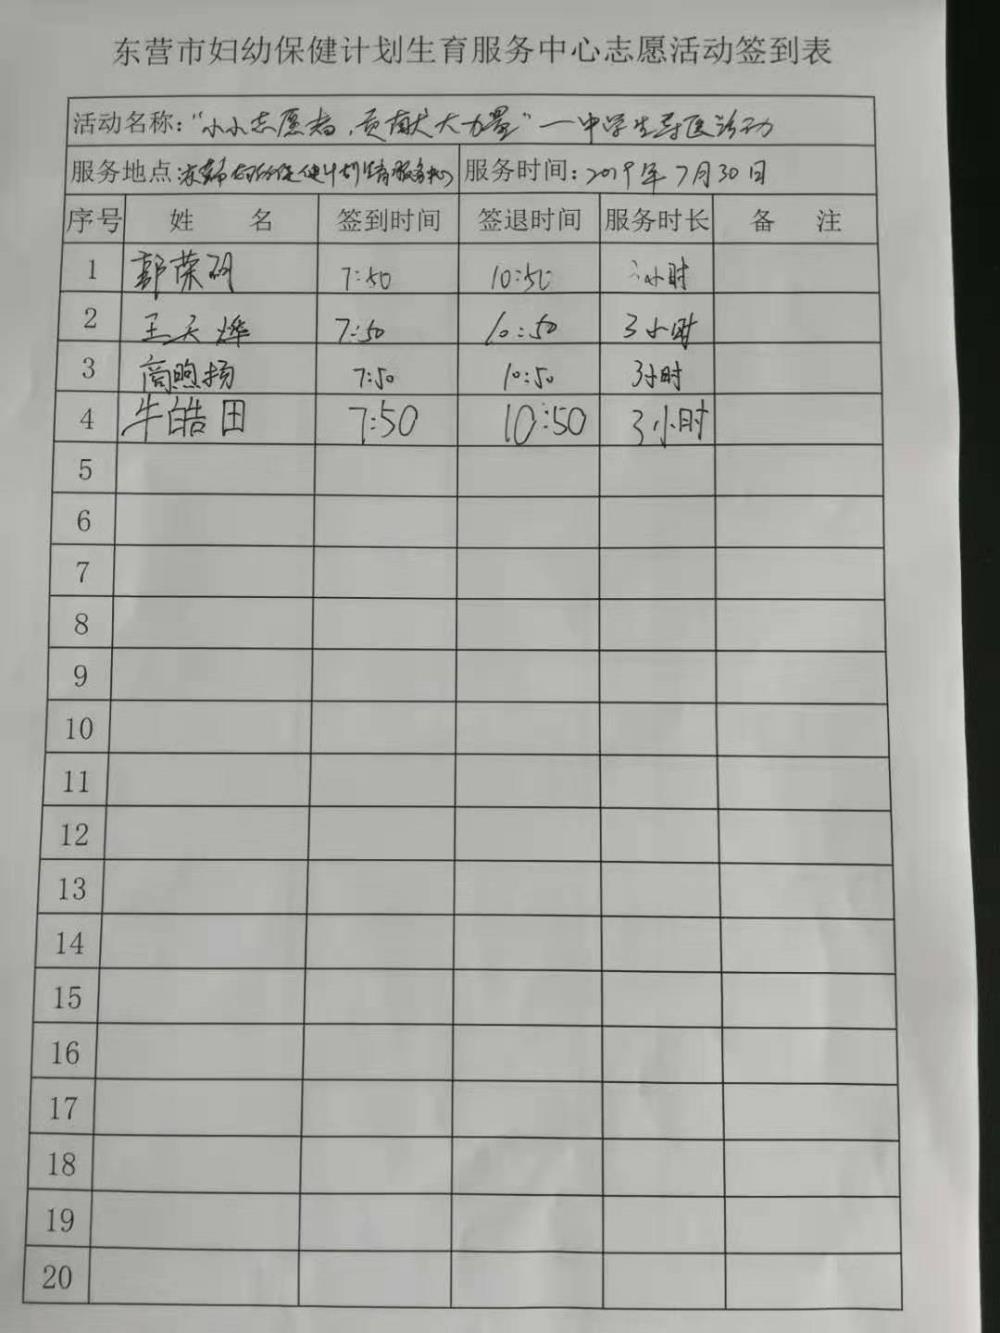 东营市妇幼保健计划生育服务中心志愿活动签到表
活动名称：“小小志愿者，贡献大力量”—中学生导医活动
服务地点：东营市妇幼保健计划生育服务中心 服务时间：2019年7月30日
序号 姓 名 签到时间 签退时间 服务时长 备 注
1 郭荣 7:50 10:50 3小时
2 王天烨 7:50 10:50 3小时
3 商煦扬 7:50 10:50 3小时
4 牛皓田 7:50 10:50 3小时
5
6
7
8
9
10
11
12
13
14
15
16
17
18
19
20